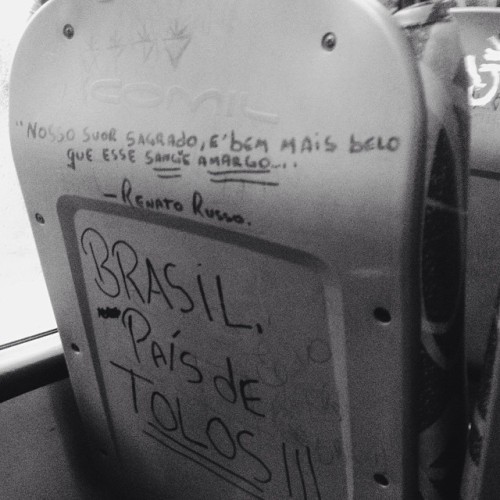 COMIL
"NOSSO SUOR SAGRADO, E' BEM MAIS BELO
QUE ESSE SANGUE AMARGO...
— RENATO RUSSO.
BRASIL,
PAÍS DE
TOLOS!!!